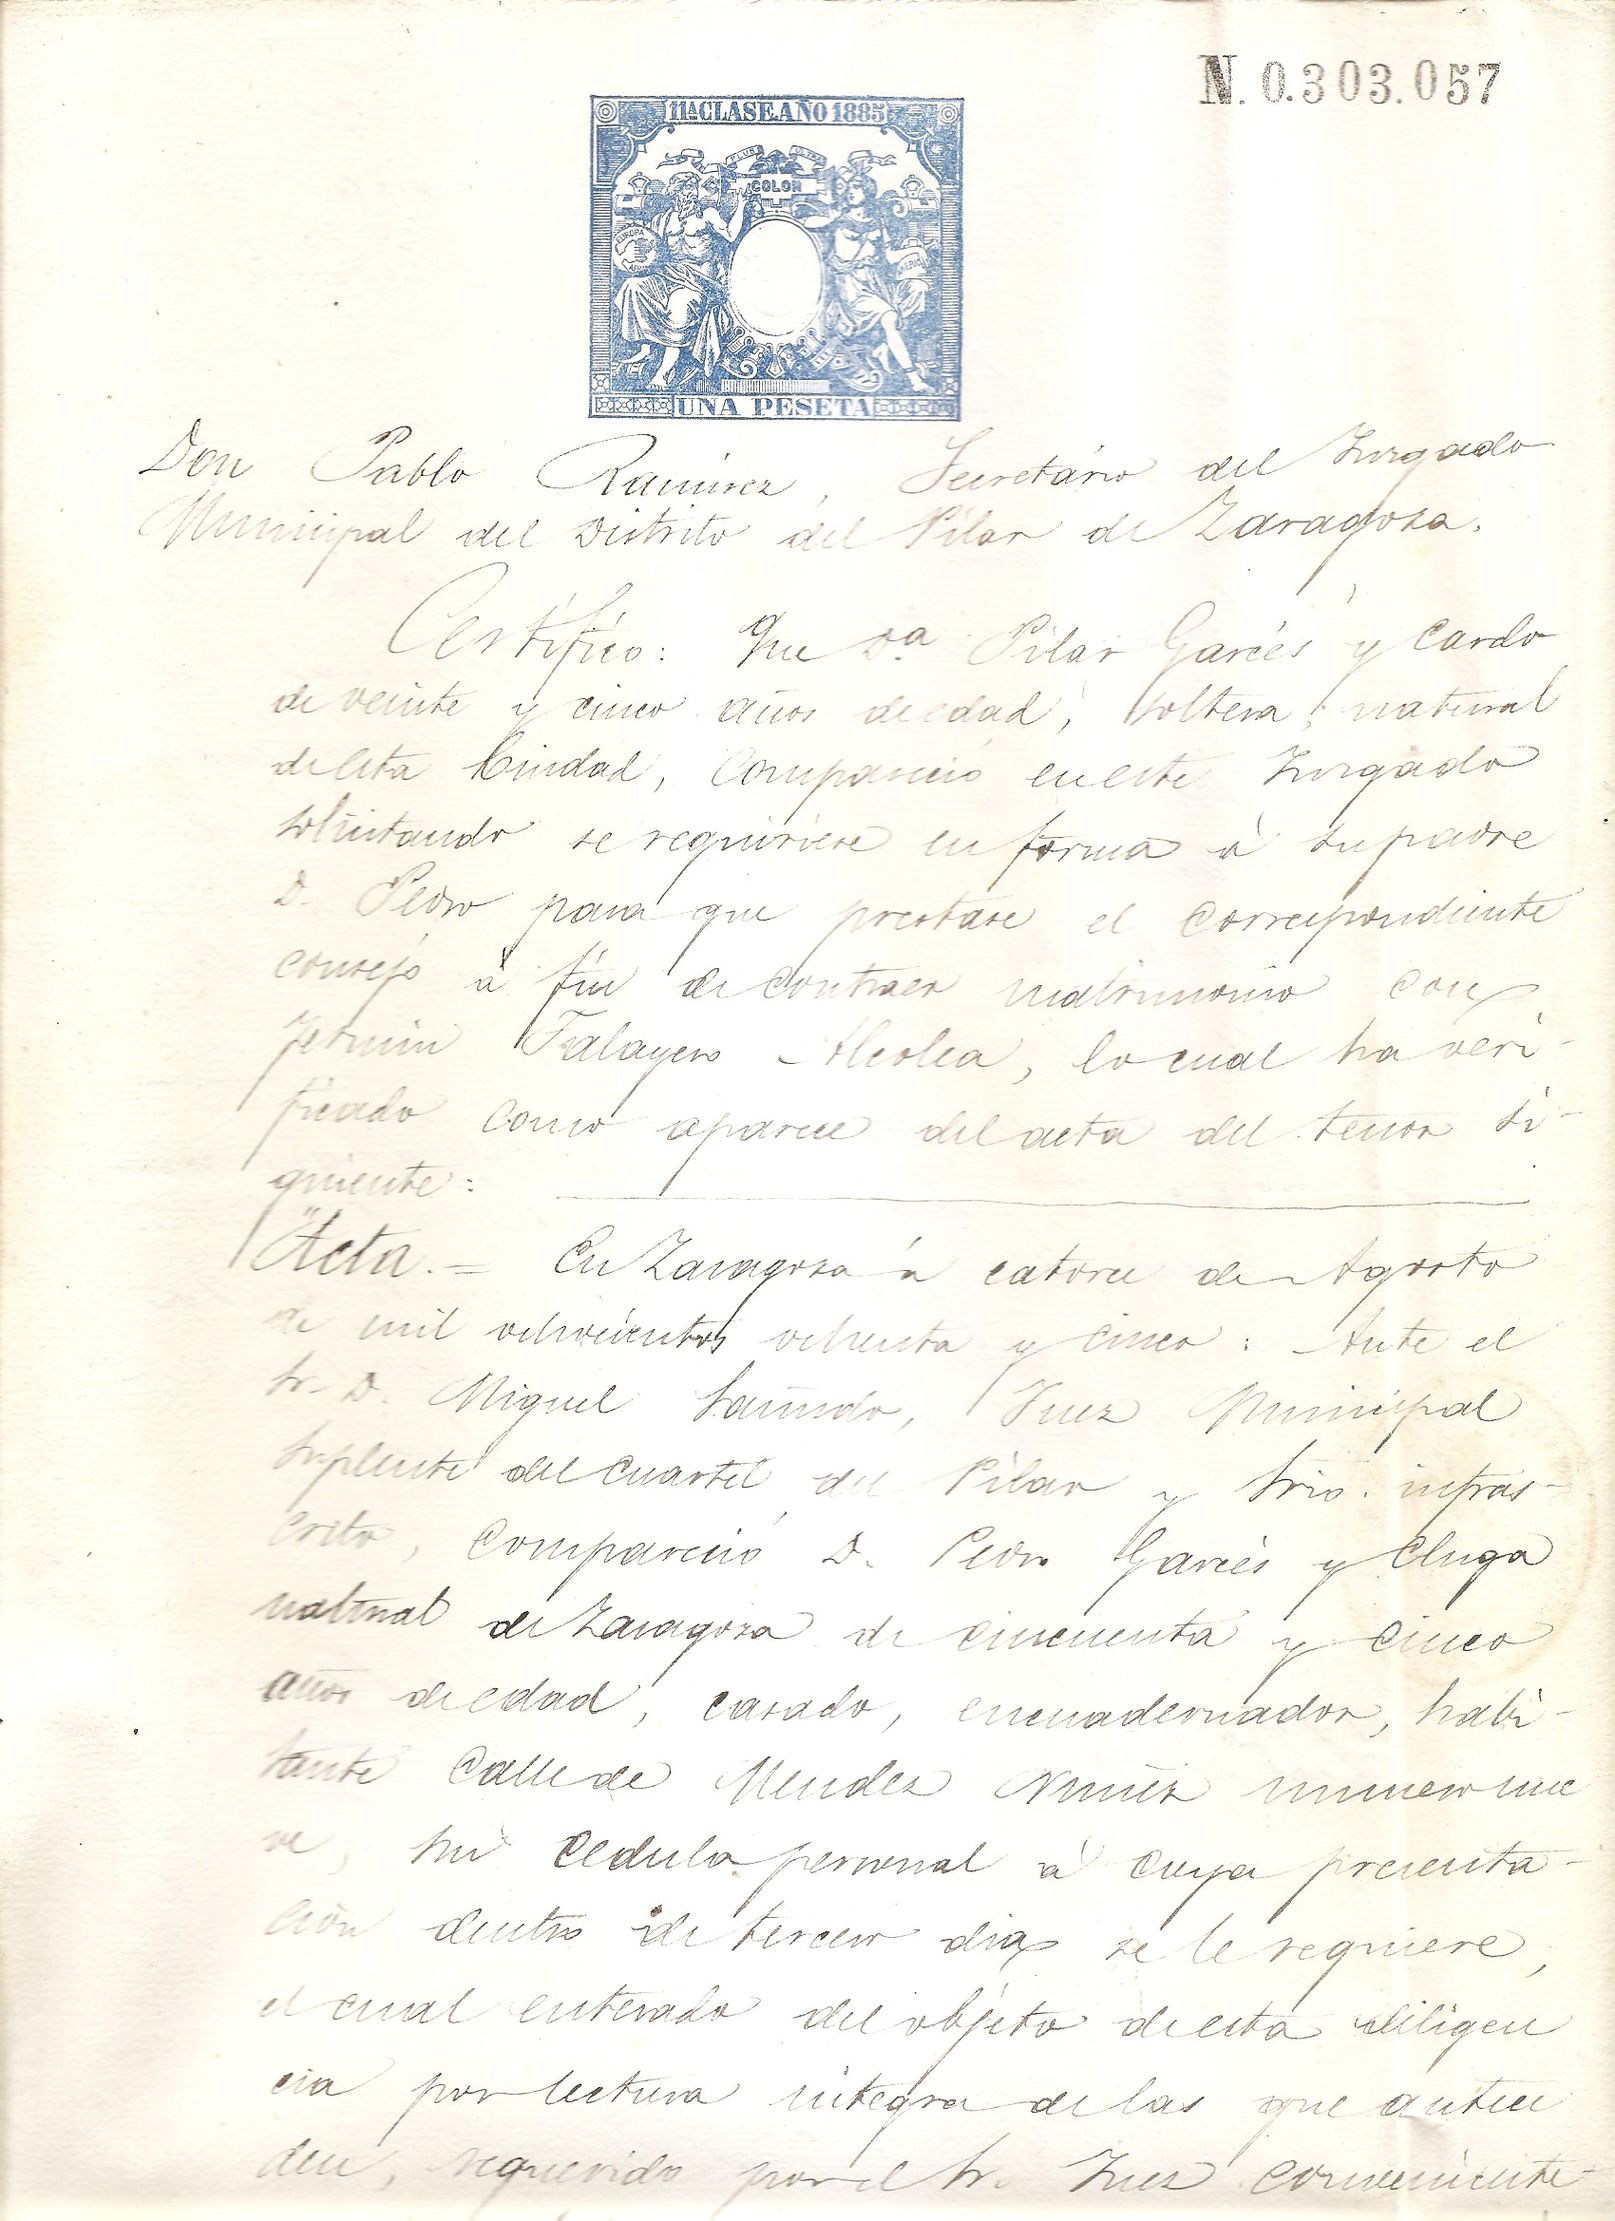 N. 0.303.057
11ª CLASE. AÑO 1885
PLUS ULTRA
COLON
EUROPA
UNA PESETA
Don Pablo Ramirez, Secretário del Juzgado
Municipal del Distrito del Pilar de Zaragoza.
Certifico: Que Dª Pilar Garcés y Cardo
de veinte y cinco años de edad, soltera, natural
de esta Ciudad, Compareció en este Juzgado
solicitando se requiriese en forma á su padre
D. Pedro para que prestase el correspondiente
consejo á fin de contraer matrimonio con
Fermin Talayero Alcolea, lo cual ha veri-
ficado como aparece del acta del tenor si-
guiente:
"Acta. = En Zaragoza á catorce de Agosto
de mil ochocientos ochenta y cinco: Ante el
Sr. D. Miguel Sañudo, Juez Municipal
Suplente del Cuartel del Pilar y Srio. infras-
crito, Compareció D. Pedro Garcés y
natural de Zaragoza de cincuenta y cinco
años de edad, casado, encuadernador, habi-
tante Calle de Mendez Nuñez numero nue
ve, sin Cedula personal á cuya presenta-
ción dentro de tercero dia se le requiere,
el cual enterado del objeto de esta diligen
cia por lectura integra de las que antece
den, requerido por el Sr. Juez conveniente-